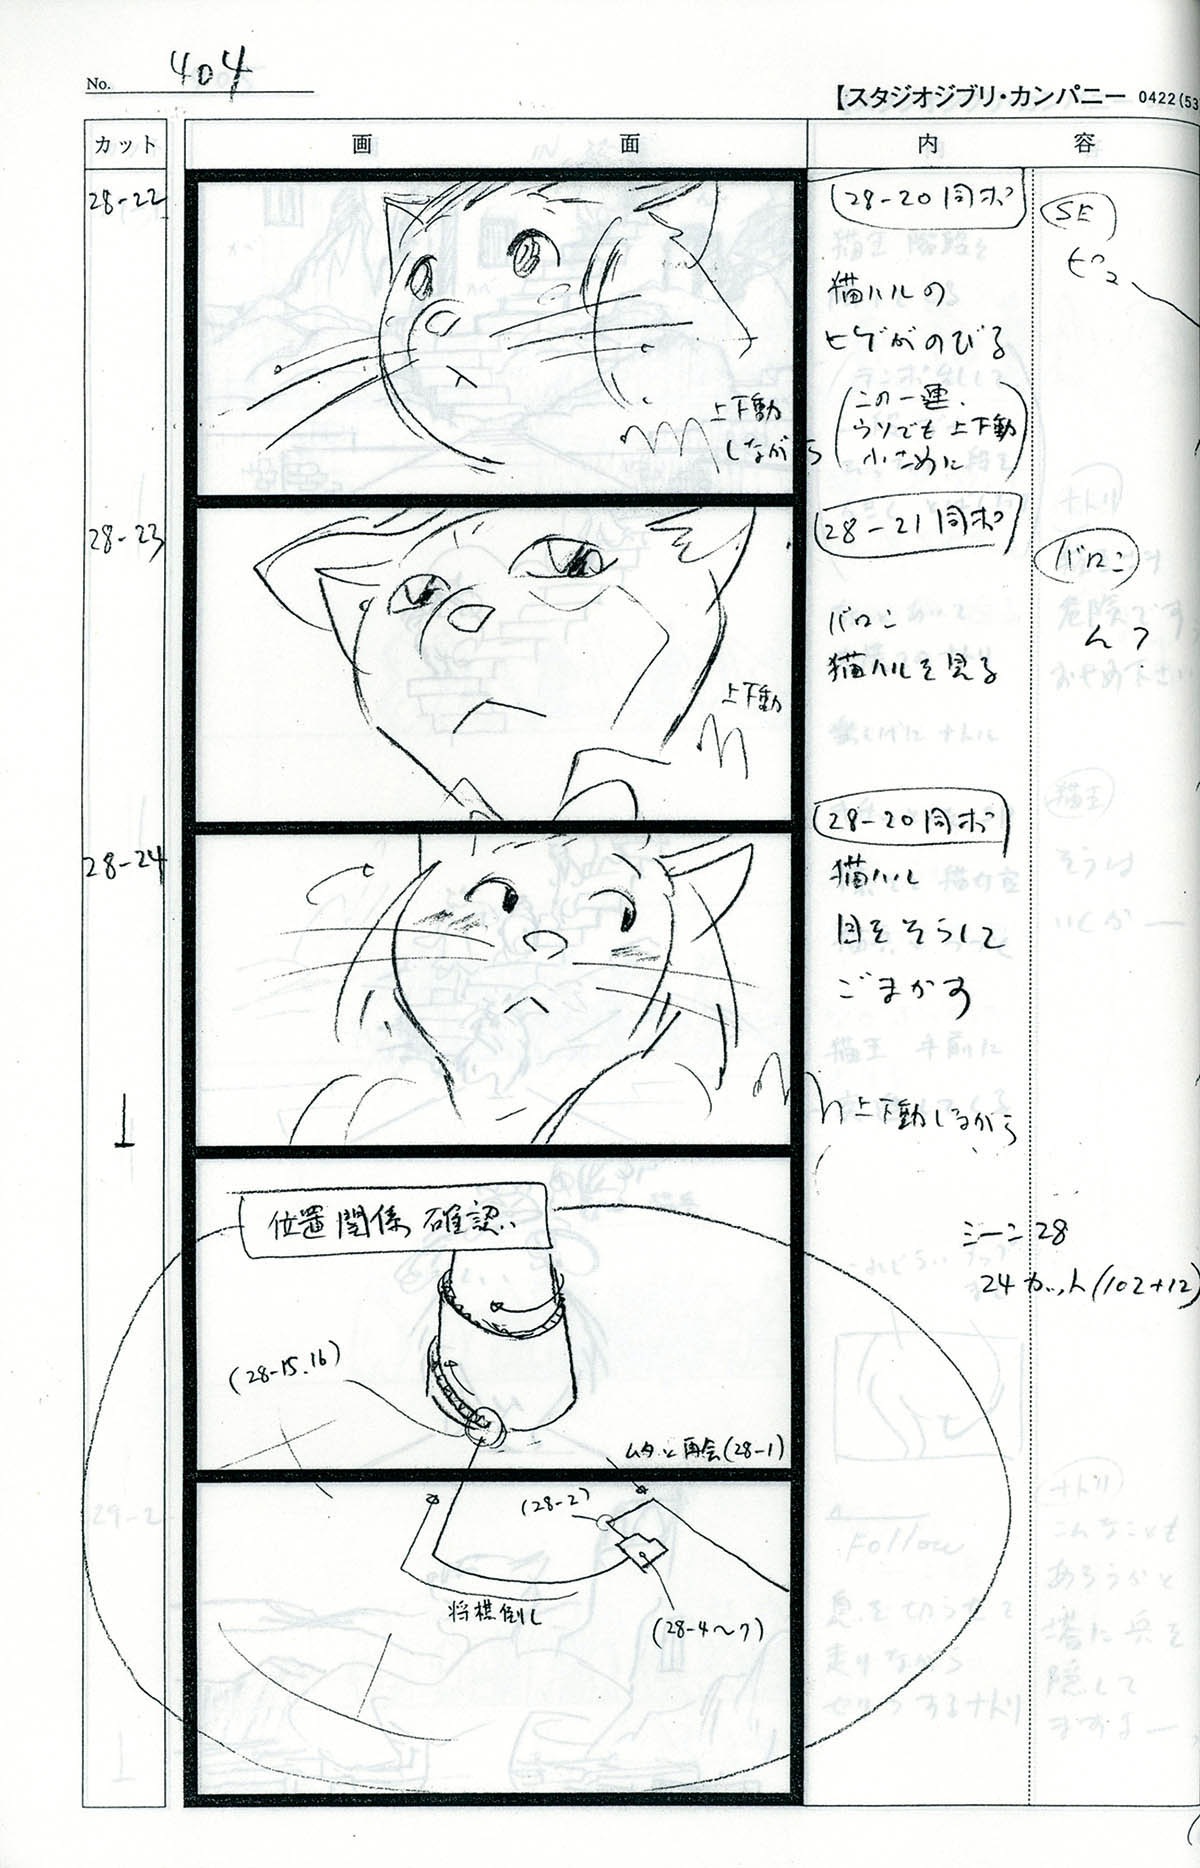 No. 404
【スタジオジブリ・カンパニー 0422(53
カット
画面
内容
28-22
上下動
しながら
28-20同ポ
猫ハルの
ヒゲがのびる
(この一連、
ウソでも上下動
小さめに)
SE
ピュ
28-23
上下動
28-21同ポ
バロン
猫ハルを見る
バロン
んっ
28-24
28-20同ポ
猫ハル
目をそらして
ごまかす
上下動しながら
位置関係確認
シーン28
24カット(102+12)
(28-15.16)
ムタと再会(28-1)
(28-2)
将棋倒し
(28-4〜7)